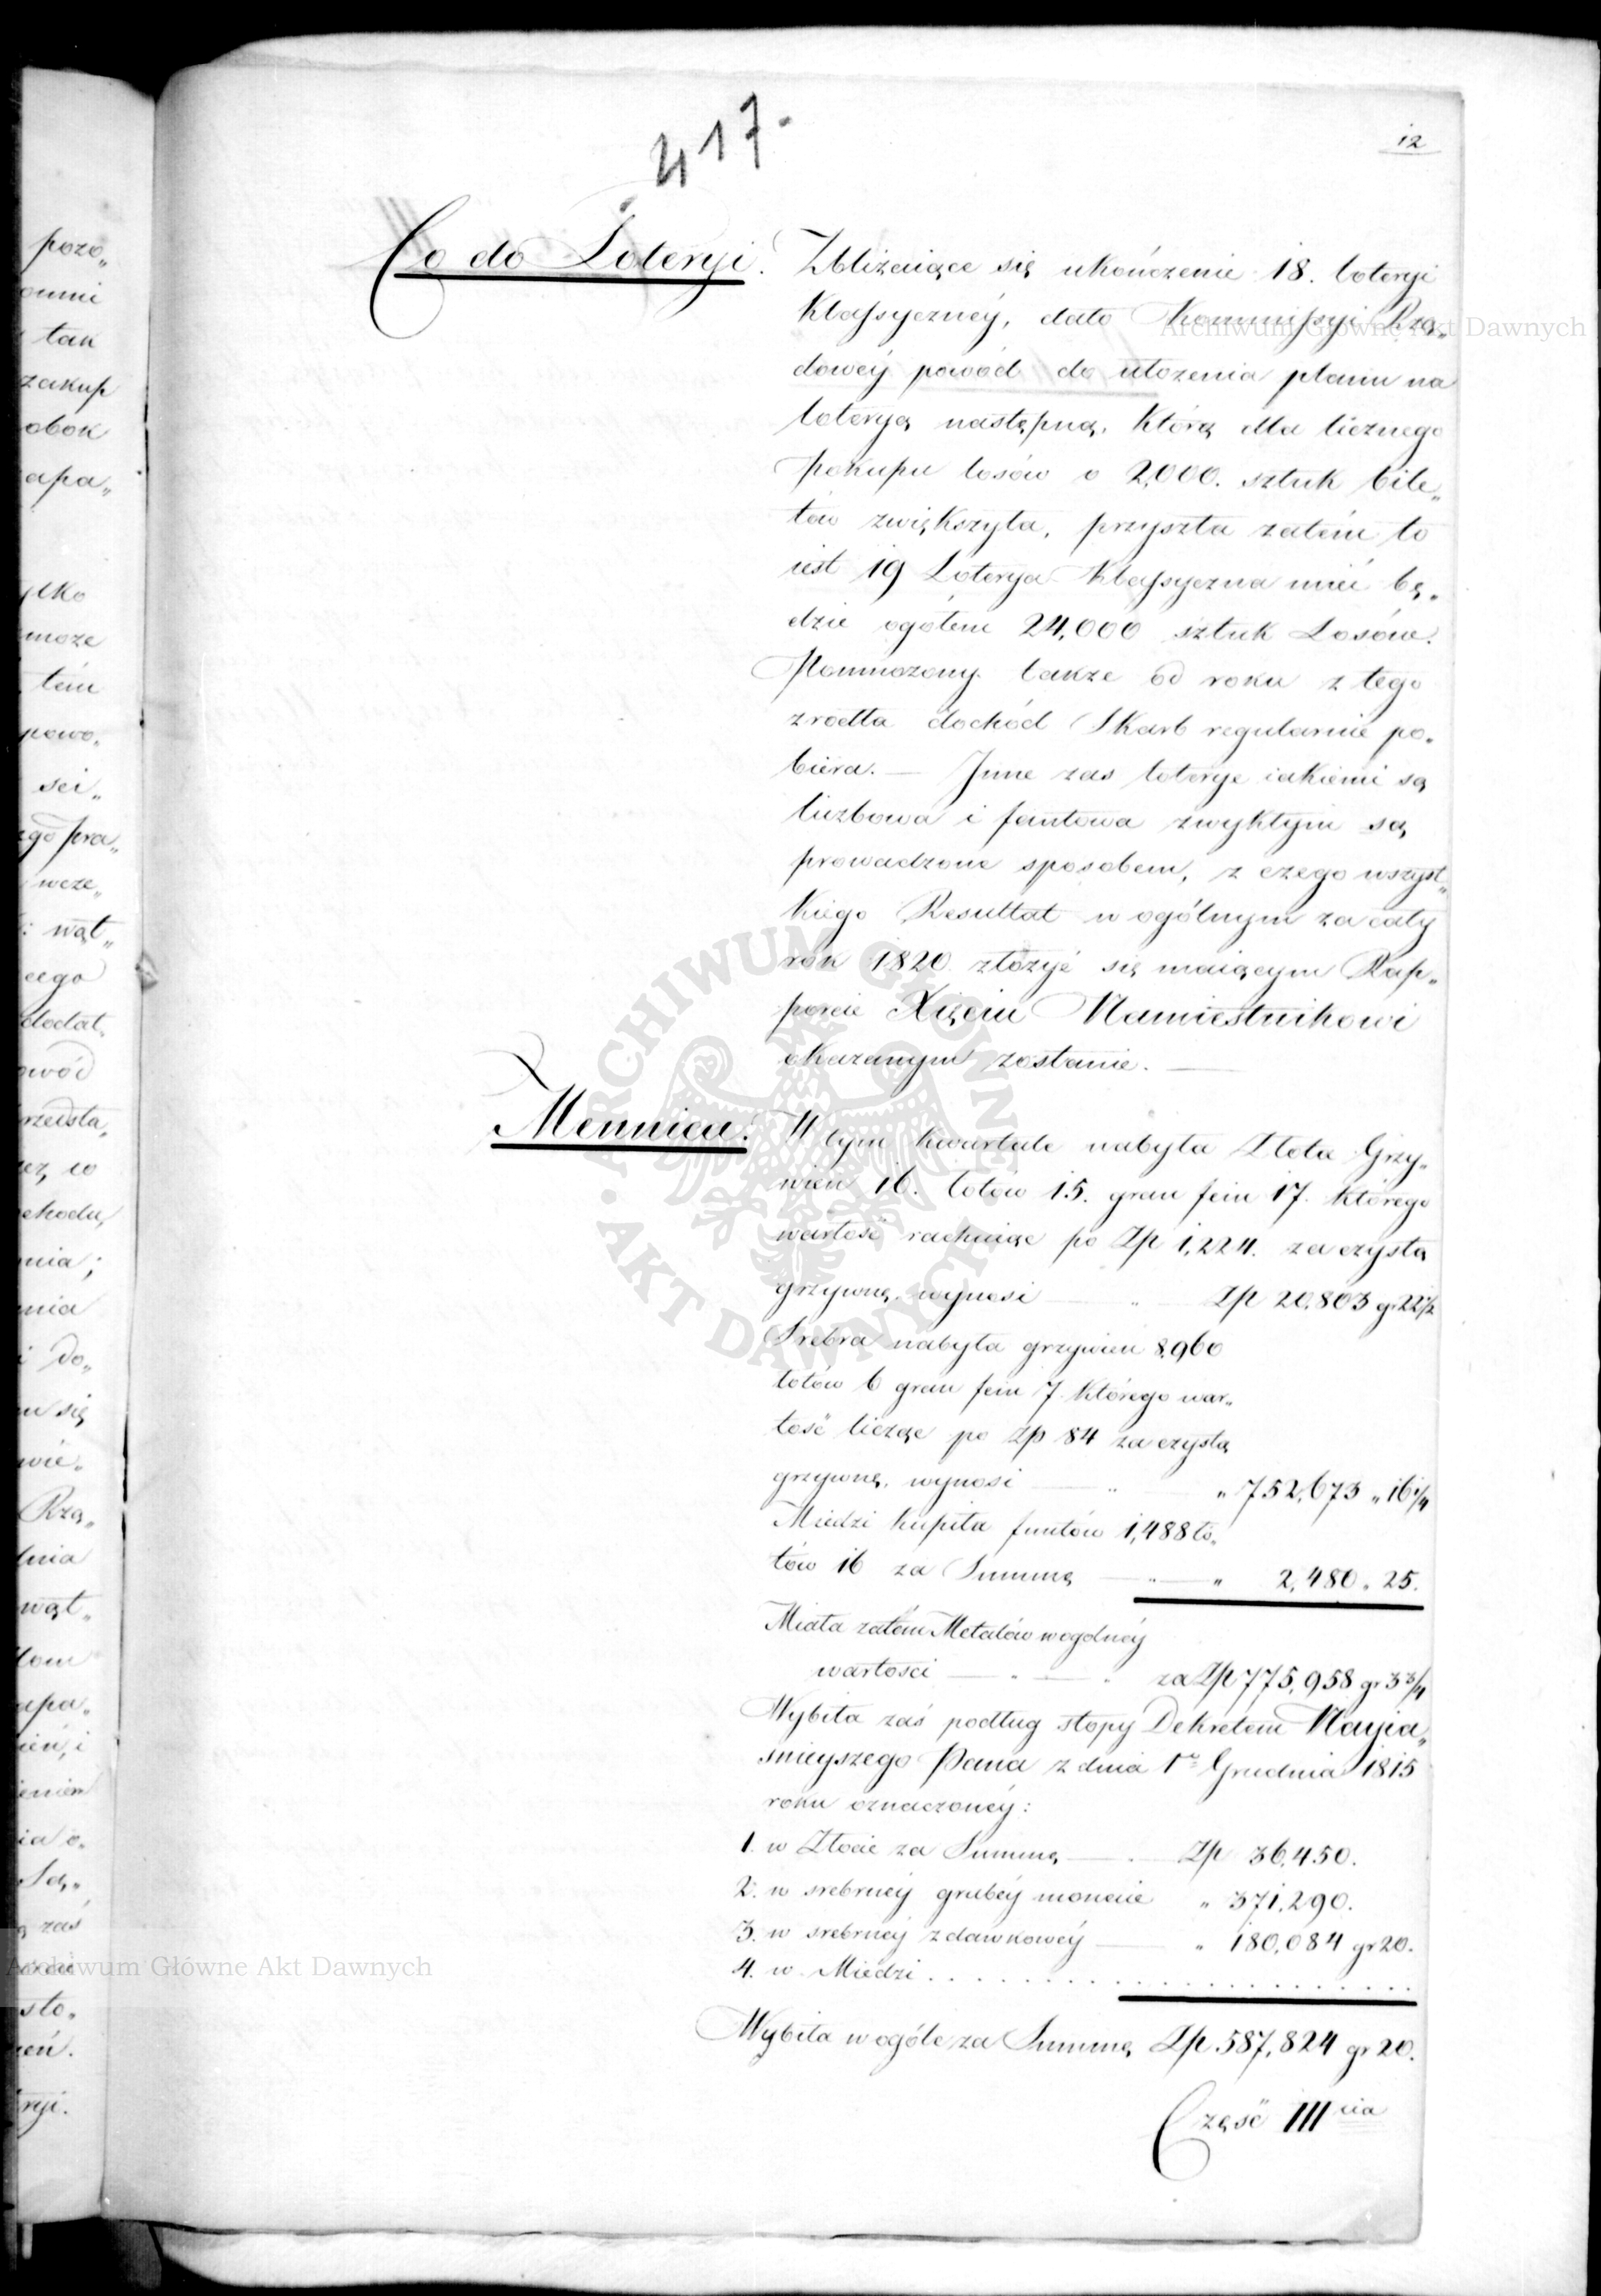 417.
12
Co do Loteryi.
Zbliżaiące się ukończenie 18. loteryi
Klassyczney, dało Kommissyi Rzą„
dowey powód do ułożenia planu na
loteryą następną, którą dla licznego
pokupu losów o 2,000. sztuk bile„
tów zwiększyła, przyszła zatém to
iest 19 Loterya Klassyczna mieć bę„
dzie ogółem 24,000 sztuk Losów.
Pomnożony także od roku z tego
zrodła dochód Skarb regularnie po„
biera. — Jnne zas loterye iakiemi są
liczbowa i fantowa zwykłym są
prowadzone sposobem, z czego wszyst„
kiego Resultat w ogólnym za cały
rok 1820 złożyć się maiącym Rap„
porcie Xięciu Namiestnikowi
okazanym zostanie. —
Mennica.
W tym kwartale nabyła Złota Grzy„
wien 16. łotów 15. gran fein 17. którego
wartość rachuiąc po Zp 1,224. za czystą
grzywnę, wynosi — „ — Zp 20,803 gr 22 1/2
Srebra nabyła grzywien 8,960
łotów 6 gran fein 7. którego war„
tość licząc po Zp 84 za czystą
grzywnę, wynosi — „ — „ 752,673 „ 16 1/4
Miedzi kupiła funtów 1,488 ło„
tów 16 za Summę — „ — „ 2,480 „ 25.
Miała zatém Metalów w ogolney
wartosci — „ — „ za Zp 775,958 gr 3 3/4
Wybiła zaś podług stopy Dekretem Nayia„
snieyszego Pana z dnia 1o Grudnia 1815
roku oznaczoney:
1. w Złocie za Summę — . — Zp 36,450.
2. w srebrney grubey monecie „ 371,290.
3. w srebrney zdawkowey — „ 180,084 gr 20.
4. w Miedzi . . . . . . . . . . . . . . . . . . . . . .
Wybiła w ogóle za Summę Zp. 587,824 gr 20.
Część III cia
pozo„
tak
zakup
obok
apa„
ylko
może
tém
powo„
sci„
zgo pra„
wcze„
wąt„
cego
dodat„
wód
rzedsta„
chodu,
nia;
nia
i do„
m się
wie„
Rzą„
dnia
wąt„
apa„
ień, i
ia o„
Są„
ą zaś
sto„
eń.
ryi.
Archiwum Główne Akt Dawnych
Archiwum Główne Akt Dawnych
ARCHIWUM GŁÓWNE • AKT DAWNYCH •